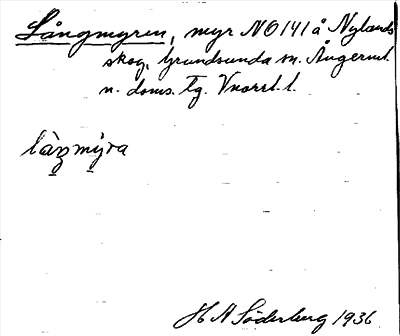 Långmyren, myr NO 141 å Nylands
skog, Grundsunda sn. Ångerml.
n. doms. Tg. Vnorrl. l.
làŋmy̆ra
H A Söderberg 1936